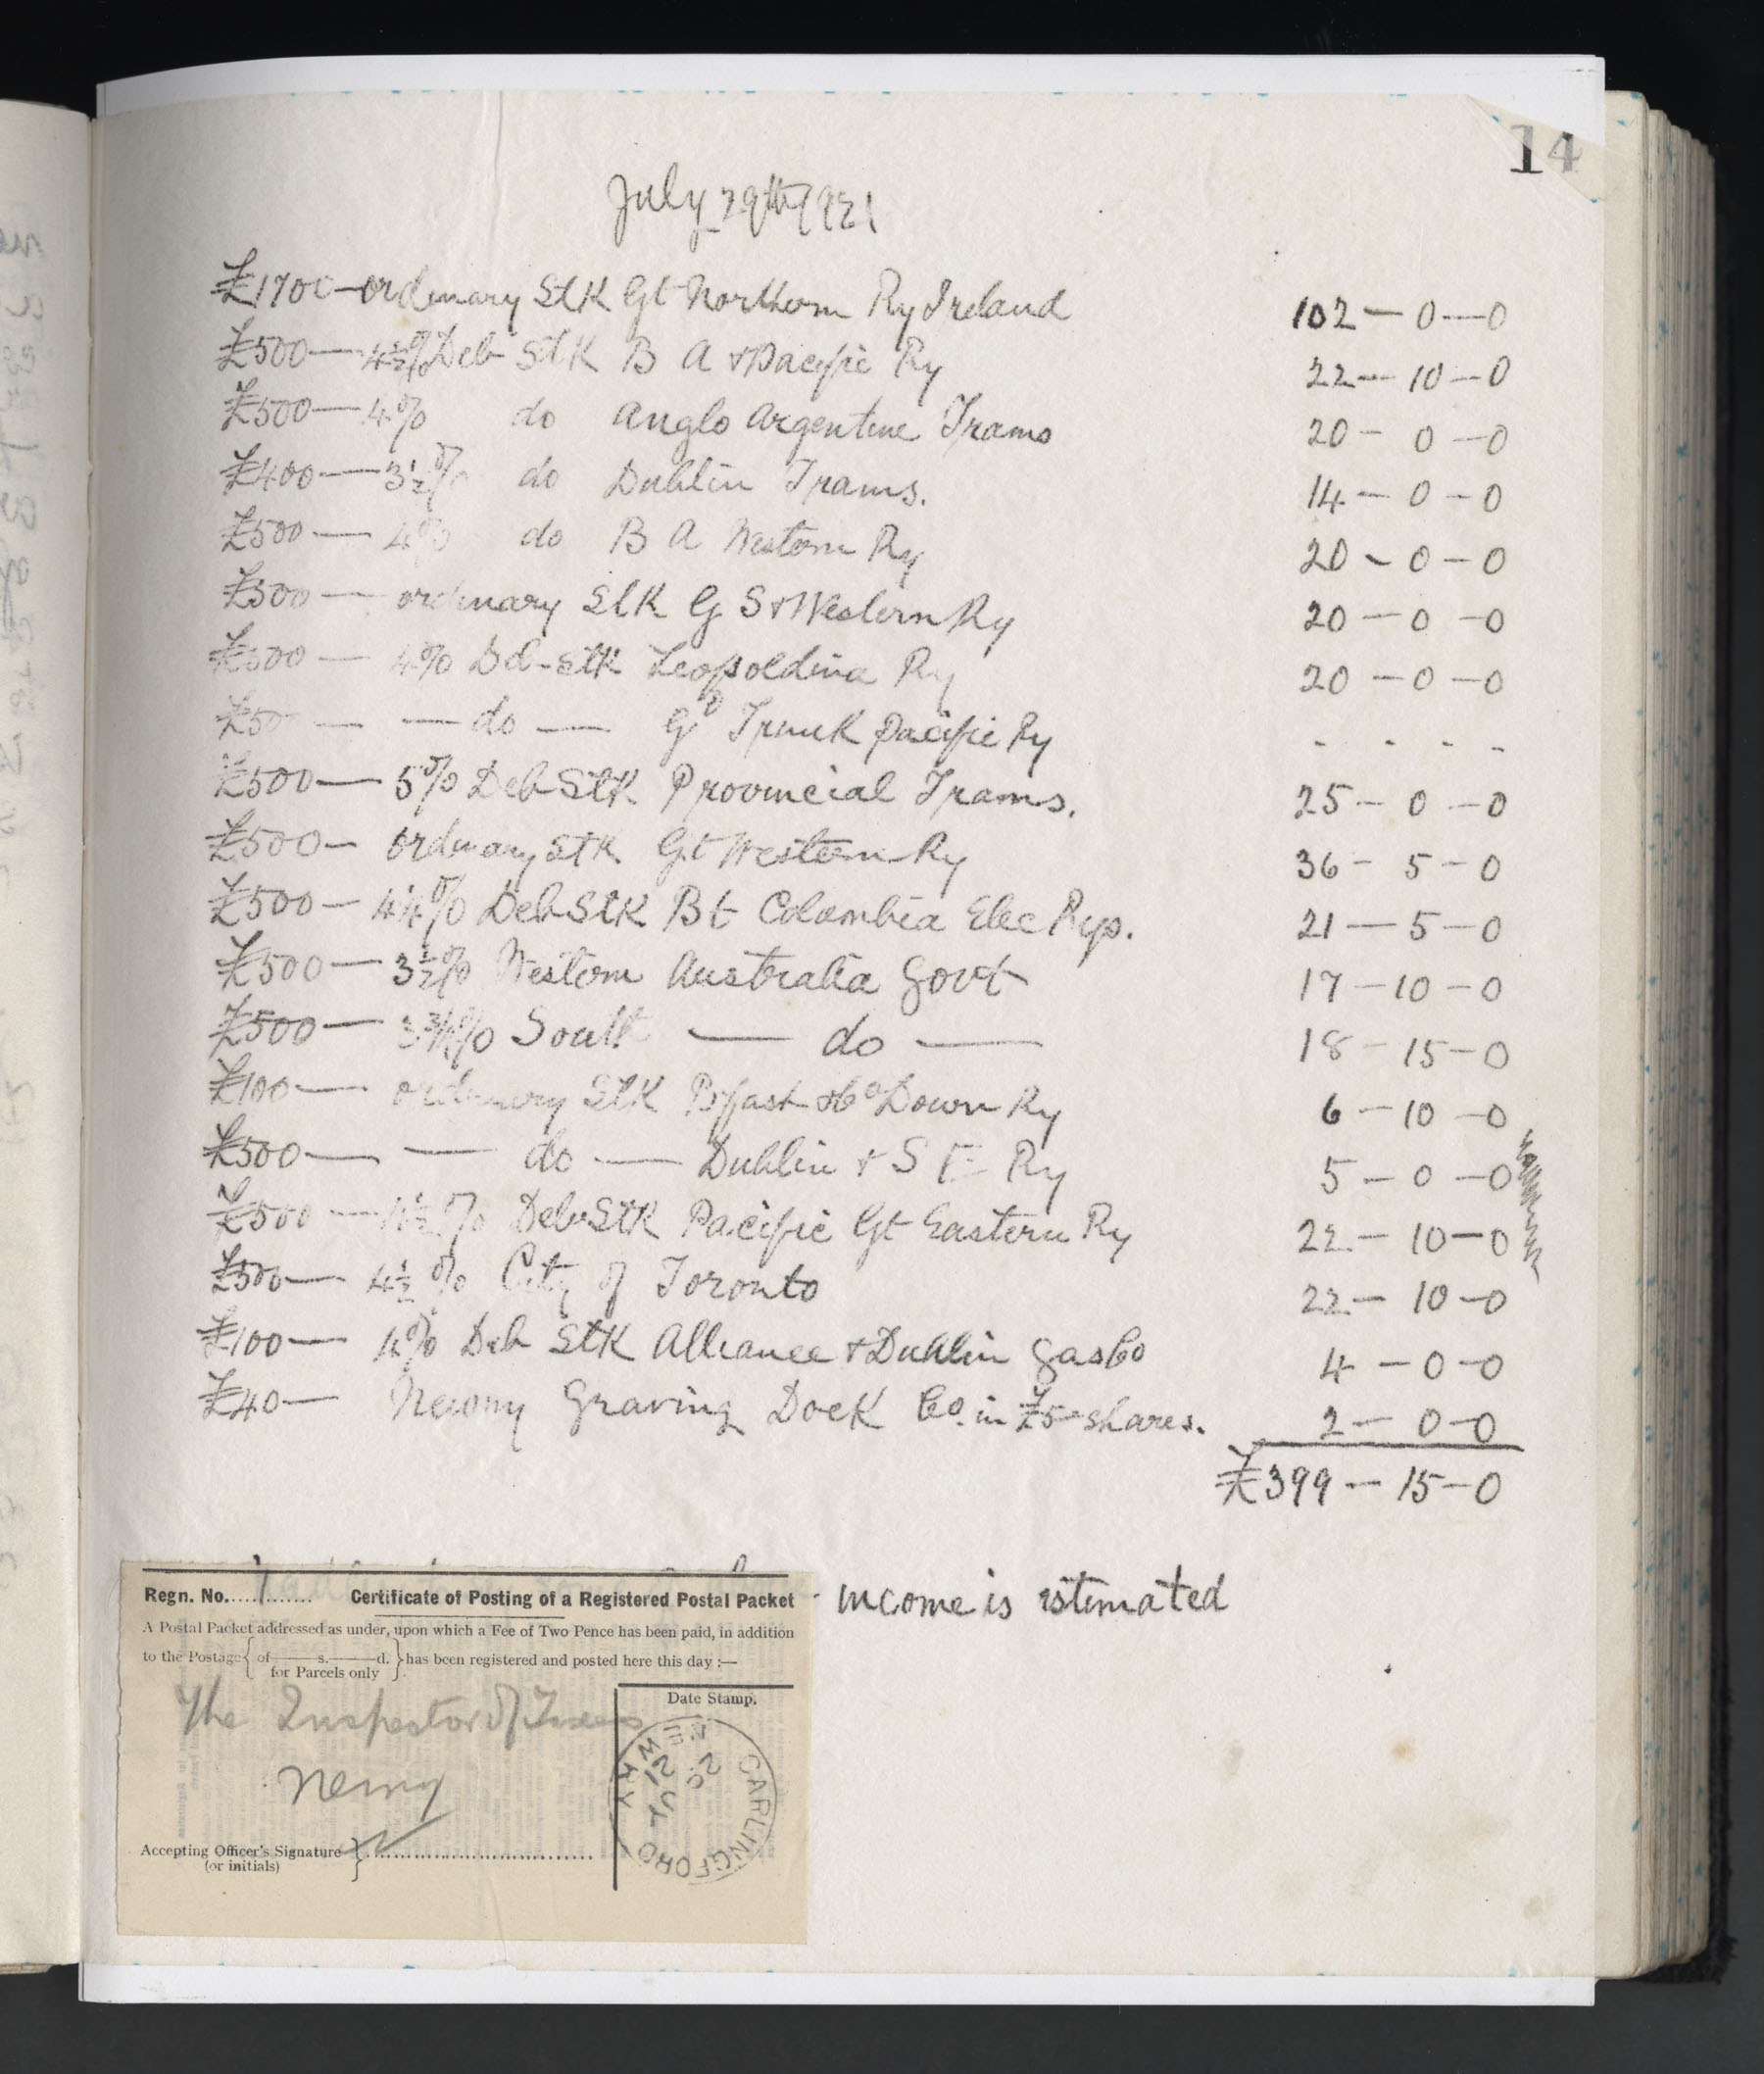 14
July 29th 1921
£1700—ordinary Stk Gt Northern Ry Ireland 102—0—0
£500—4½% Deb Stk B A & Pacific Ry 22—10—0
£500—4% do Anglo Argentine Trams 20—0—0
£400—3½% do Dublin Trams. 14—0—0
£500—4% do B A Western Ry 20—0—0
£500—ordinary Stk G S & Western Ry 20—0—0
£500—4% Deb-Stk Leopoldina Ry 20—0—0
£500— —do— Gd Trunk Pacific Ry - - - -
£500—5% Deb Stk Provincial Trams. 25—0—0
£500—ordinary Stk Gt Western Ry 36—5—0
£500—4¼% Deb Stk Bt Columbia Elec Rys. 21—5—0
£500—3½% Western Australia Govt 17—10—0
£500—3¾% South —do— 18—15—0
£100—ordinary Stk Bfast & Co Down Ry 6—10—0
£500— —do— Dublin & S E Ry 5—0—0
£500—4½% Deb Stk Pacific Gt Eastern Ry 22—10—0
£500—4½% City of Toronto 22—10—0
£100—4% Deb Stk Alliance & Dublin Gas Co 4—0—0
£40—Newry Graving Dock Co. in £5 shares. 2—0—0
£399—15—0
income is estimated
Regn. No. 1 Certificate of Posting of a Registered Postal Packet
A Postal Packet addressed as under, upon which a Fee of Two Pence has been paid, in addition
to the Postage { of——s.——d. } has been registered and posted here this day :—
for Parcels only
The Inspector of Taxes
Newry
Date Stamp.
CARLINGFORD
NEWRY
Accepting Officer's Signature
(or initials)